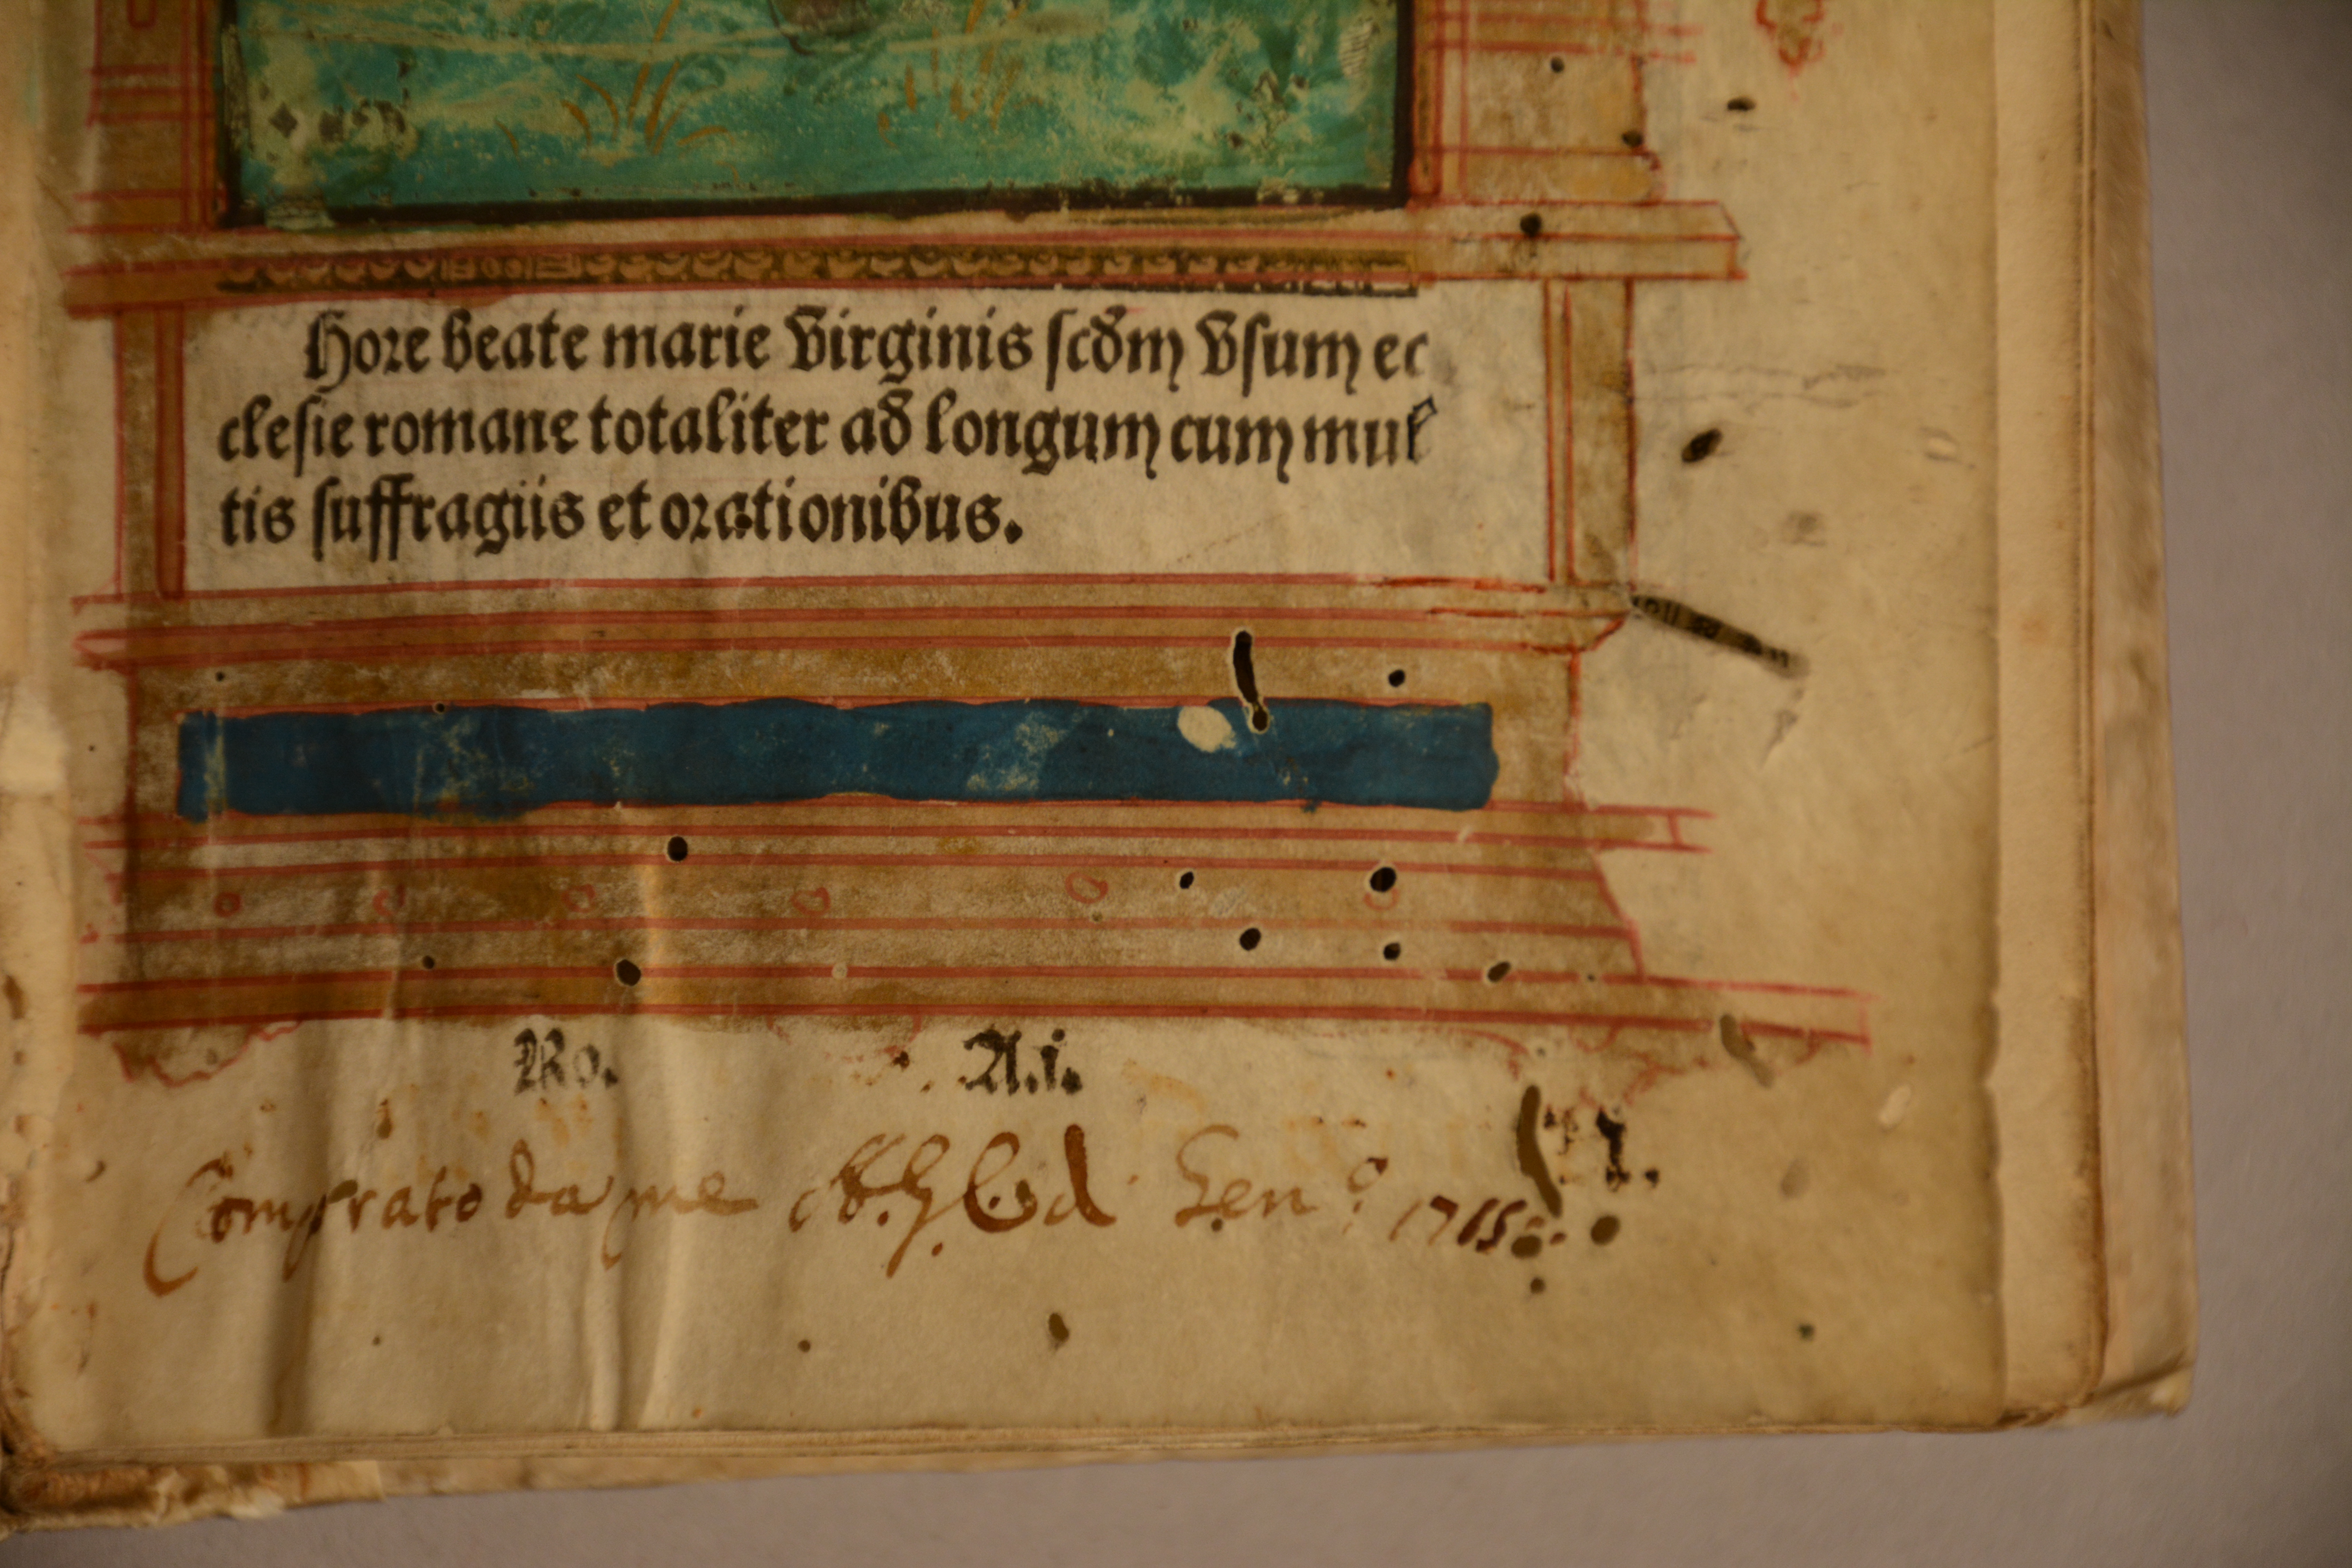 Hore beate marie Virginis scd̄m Vsum ec
clesie romane totaliter ad longum cum mul
tis suffragiis et orationibus.
Ro. A.i.
Comprato da me Gen.º 1715